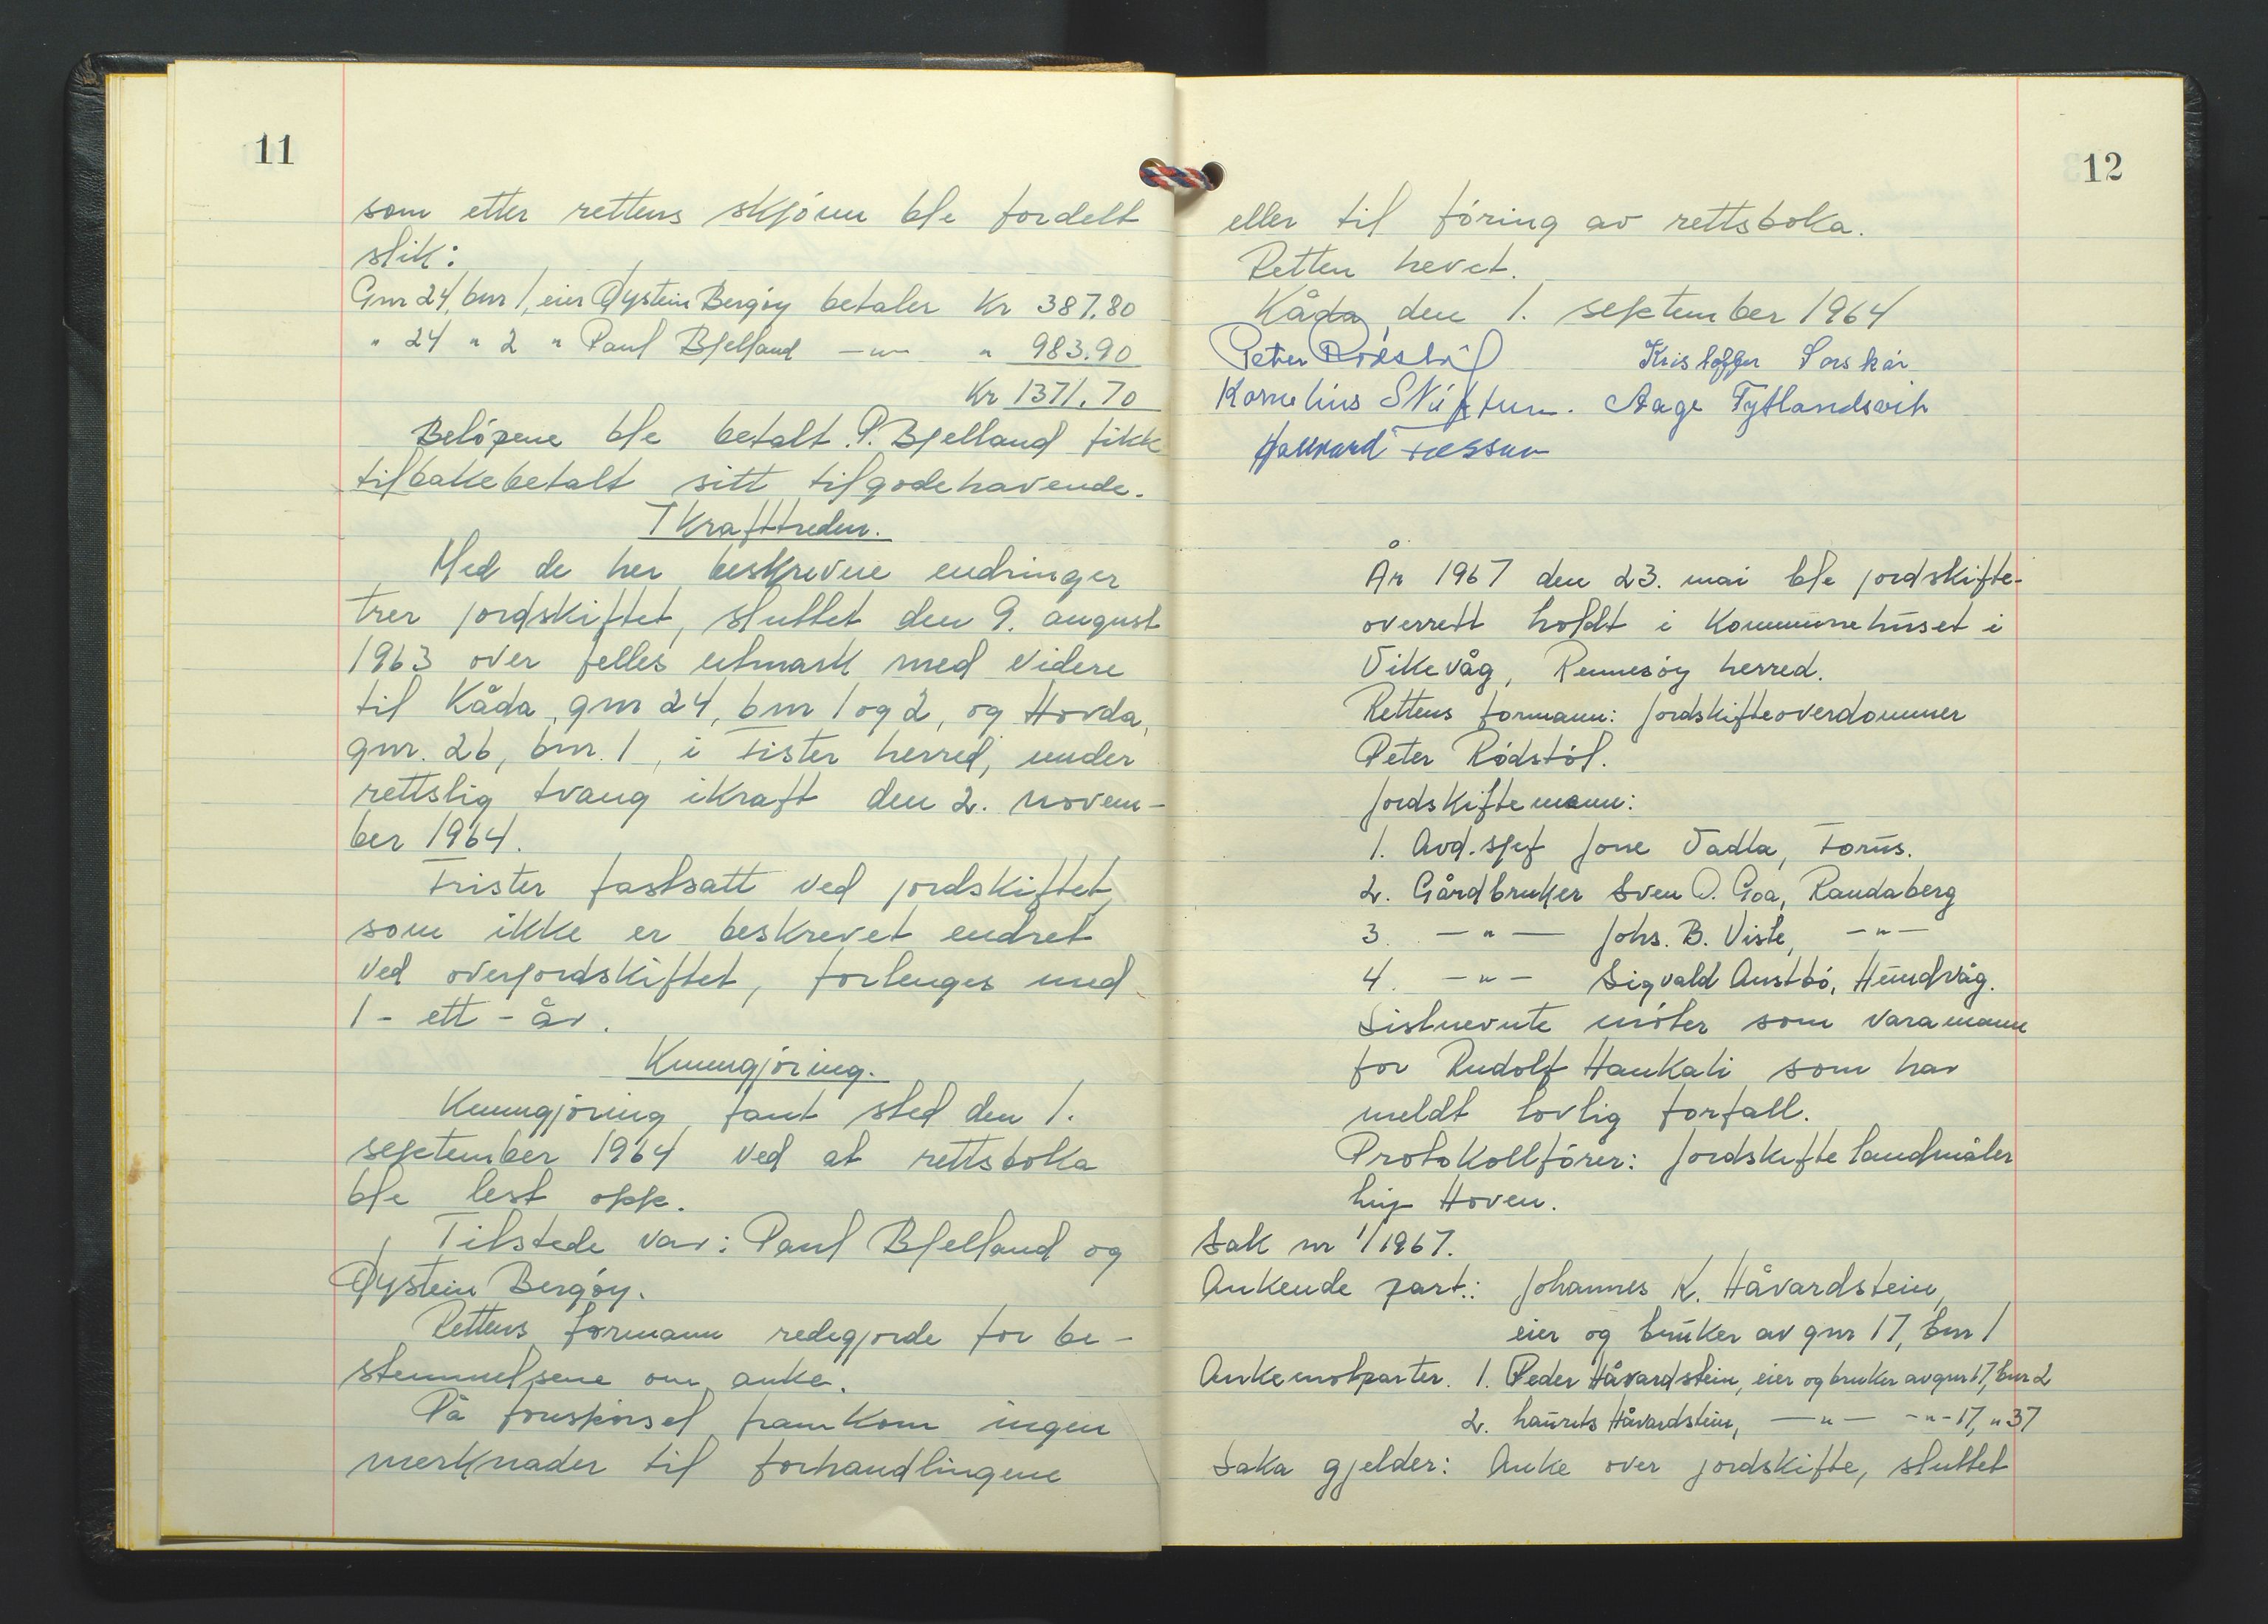 11
som etter rettens skjønn ble fordelt
slik:
Gnr 24, bnr 1, eier Øystein Bergøy betaler Kr 387.80
" 24 " 2 " Paul Bjelland —"— " 983.90
Kr 1371.70
Beløpene ble betalt. P. Bjelland fikk
tilbakebetalt sitt tilgodehavende.
Ikrafttreden.
Med de her beskrevne endringer
trer jordskiftet, sluttet den 9. august
1963 over felles utmark med videre
til Kåda, gnr 24, bnr 1 og 2, og Hovda,
gnr. 26, bnr. 1, i Fister herred, under
rettslig tvang ikraft den 2. novem-
ber 1964.
Frister fastsatt ved jordskiftet,
som ikke er beskrevet endret
ved overjordskiftet, forlenges med
1 - ett - år.
Kunngjøring.
Kunngjøring fant sted den 1.
september 1964 ved at rettsboka
ble lest opp.
Tilstede var: Paul Bjelland og
Øystein Bergøy.
Rettens formann redegjorde for be-
stemmelsene om anke.
På forespørsel framkom ingen
merknader til forhandlingene
12
eller til føring av rettsboka.
Retten hevet.
Kåda, den 1. september 1964
Peter Rødstøl Kristoffer Sorskår
Kornelius Aage Tytlandsvik
År 1967 den 23. mai ble jordskifte-
overrett holdt i Kommunehuset i
Vikevåg, Rennesøy herred.
Rettens formann: Jordskifteoverdommer
Peter Rødstøl.
Jordskiftemenn:
1. Avd.sjef Jone Vadla, Forus.
2. Gårdbruker Sven O. Goa, Randaberg
3. —"— Johs. B. Viste, —"—
4. —"— Sigvald Austbø, Hundvåg.
Sistnevnte møter som varamann
for Rudolf Haukali som har
meldt lovlig forfall.
Protokollfører: Jordskiftelandmåler
Hoven.
Sak nr 1/1967.
Ankende part: Johannes K. Håvardstein,
eier og bruker av gnr 17, bnr 1
Ankemotparter. 1. Peder Håvardstein, eier og bruker av gnr 17, bnr 2
2. Laurits Håvardstein, —"— -"- 17, " 37
Saka gjelder: Anke over jordskifte, sluttet